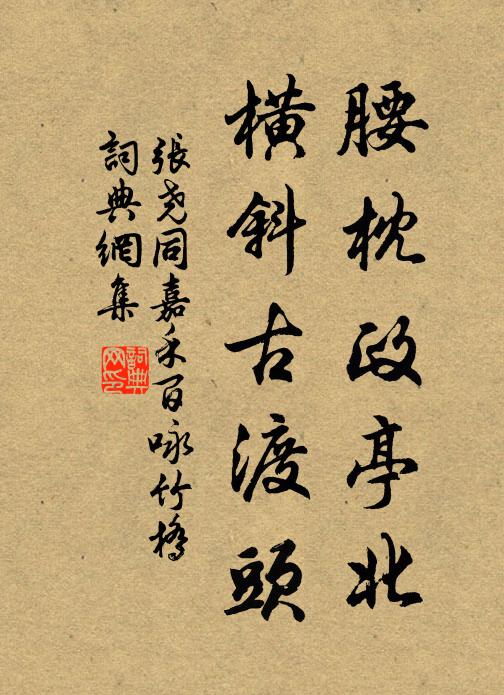 腰枕政亭北
橫斜古渡頭
張尧同嘉禾百咏竹橋
詞典網集
詞典网印